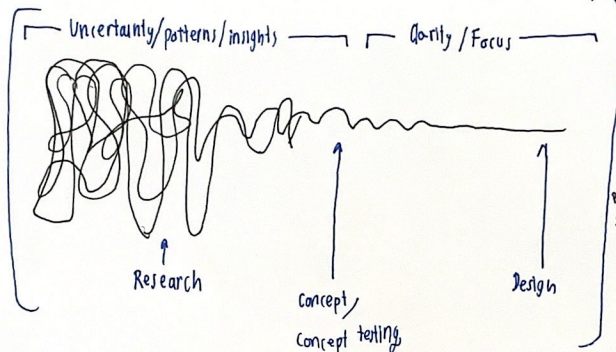 Uncertainty/patterns/insights
Clarity/Focus
Research
Concept,
Concept testing
Design